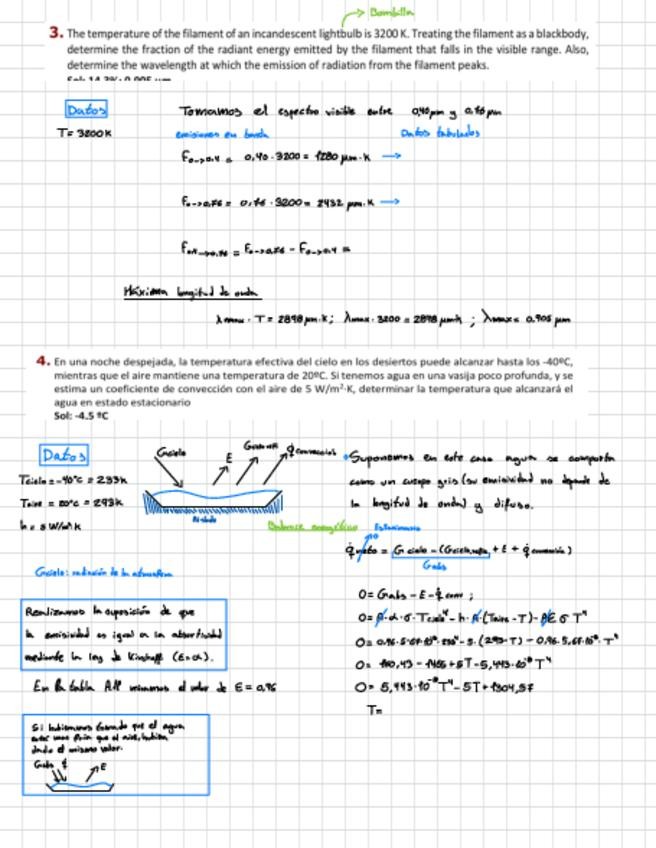 Bombilla
3. The temperature of the filament of an incandescent lightbulb is 3200 K. Treating the filament as a blackbody,
determine the fraction of the radiant energy emitted by the filament that falls in the visible range. Also,
determine the wavelength at which the emission of radiation from the filament peaks.
Datos
T= 3200K
Tomamos el espectro visible entre 0,40 μm y 0,76 μm
emisiones en banda
Datos tabulados
F0→0,4 = 0,40 · 3200 = 1280 μm·K →
F0→0,76 = 0,76 · 3200 = 2432 μm·K →
F0,4→0,76 = F0→0,76 - F0→0,4 =
Máxima longitud de onda
λmax · T = 2898 μm·K; λmax · 3200 = 2898 μmK ; λmax = 0,905 μm
4. En una noche despejada, la temperatura efectiva del cielo en los desiertos puede alcanzar hasta los -40ºC,
mientras que el aire mantiene una temperatura de 20ºC. Si tenemos agua en una vasija poco profunda, y se
estima un coeficiente de convección con el aire de 5 W/m²·K, determinar la temperatura que alcanzará el
agua en estado estacionario
Sol: -4.5 ºC
Datos
Tcielo = -40ºC = 233K
Taire = 20ºC = 293K
h = 5 W/m²K
Gcielo
E
q̇convección
Aislado
Suponemos en este caso agua se comporta
como un cuerpo gris (su emisividad no depende de
la longitud de onda) y difuso.
Balance energético
Estacionario
q̇neto = Gcielo - (Gcielo,refl + E + q̇convección)
Gabs
Gcielo: radiación de la atmosfera
0 = Gabs - E - q̇conv ;
0 = A·α·σ·Tcielo⁴ - h·A·(Taire - T) - AEσT⁴
0 = 0,96·5,67·10⁻⁸·233⁴ - 5·(293-T) - 0,96·5,67·10⁻⁸·T⁴
0 = 160,43 - 1465 + 5T - 5,443·10⁻⁸T⁴
0 = 5,443·10⁻⁸T⁴ - 5T + 1304,57
T=
Realizamos la suposición de que
la emisividad es igual a la absortividad
mediante la ley de Kirchhoff (E=α).
En la tabla A11 miramos el valor de E = 0,96
Si hubiesemos tomado que el agua
dado el mismo valor.
Gabs
E